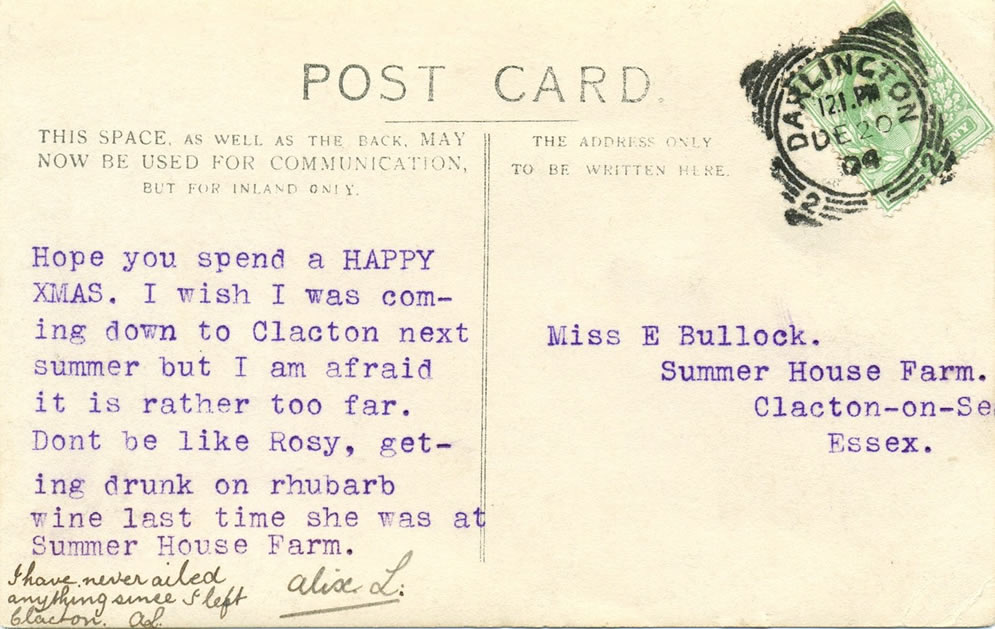 POST CARD.
THIS SPACE, AS WELL AS THE BACK, MAY
NOW BE USED FOR COMMUNICATION,
BUT FOR INLAND ONLY.
THE ADDRESS ONLY
TO BE WRITTEN HERE.
DARLINGTON
12.1.PM
DE 20
2
2
NY
Hope you spend a HAPPY
XMAS. I wish I was com-
ing down to Clacton next
summer but I am afraid
it is rather too far.
Dont be like Rosy, get-
ing drunk on rhubarb
wine last time she was at
Summer House Farm.
I have never ailed
anything since I left
Clacton. AL.
Alix L:
Miss E Bullock.
Summer House Farm.
Clacton-on-Se
Essex.